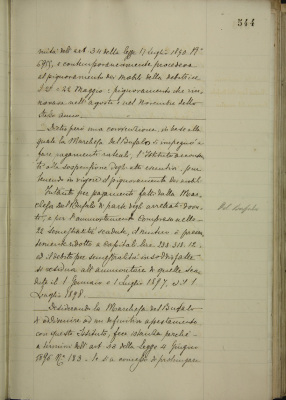 344
nuità dell'art. 34 della legge 17 Luglio 1890 N.
6955, e contemporaneamente procedeva
al pignoramento dei mobili della debitrice
il 21 - 22 Maggio: pignoramento che rin-
novava nell'agosto e nel novembre dello
stesso anno.
Dietro però una convenzione, in base alla
quale la Marchesa Del Bufalo si impegnò a
fare pagamenti rateali, l'Istituto accorda-
va la sospensione degli atti esecutivi, pur
tenendo in vigore il pignoramento dei mobili.
Intanto per pagamenti fatti dalla Mar-
chesa Del Bufalo di parte degli arretrati dovu-
ti, e per l'ammortamento compreso nelle
22 semestralità scadute, il mutuo è presen-
temente ridotto a capitale Lire
ed il debito per semestralità insoddisfatte
si residua all'ammontare di quelle sca-
dute il 1 Gennaio e 1 Luglio 1897 ed il 1
Luglio 1898.
Desiderando la Marchesa Del Bufalo
di addivenire ad un definitivo assestamento
con questo Istituto, fece istanza perchè
a termini dell'art. della legge 4 Giugno
1896 N. 183 le si conceda di prolungare
Del Bufalo